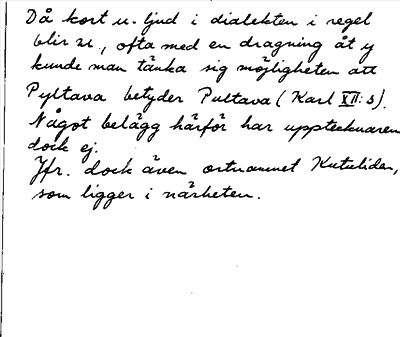 Då kort u-ljud i dialekten i regel
blir u, ofta med en dragning åt y
kunde man tänka sig möjligheten att
Pyltava betyder Pultava (Karl XII:s).
Något belägg härför har upptecknaren
dock ej.
Jfr. dock även ortnamnet Kutuliden,
som ligger i närheten.